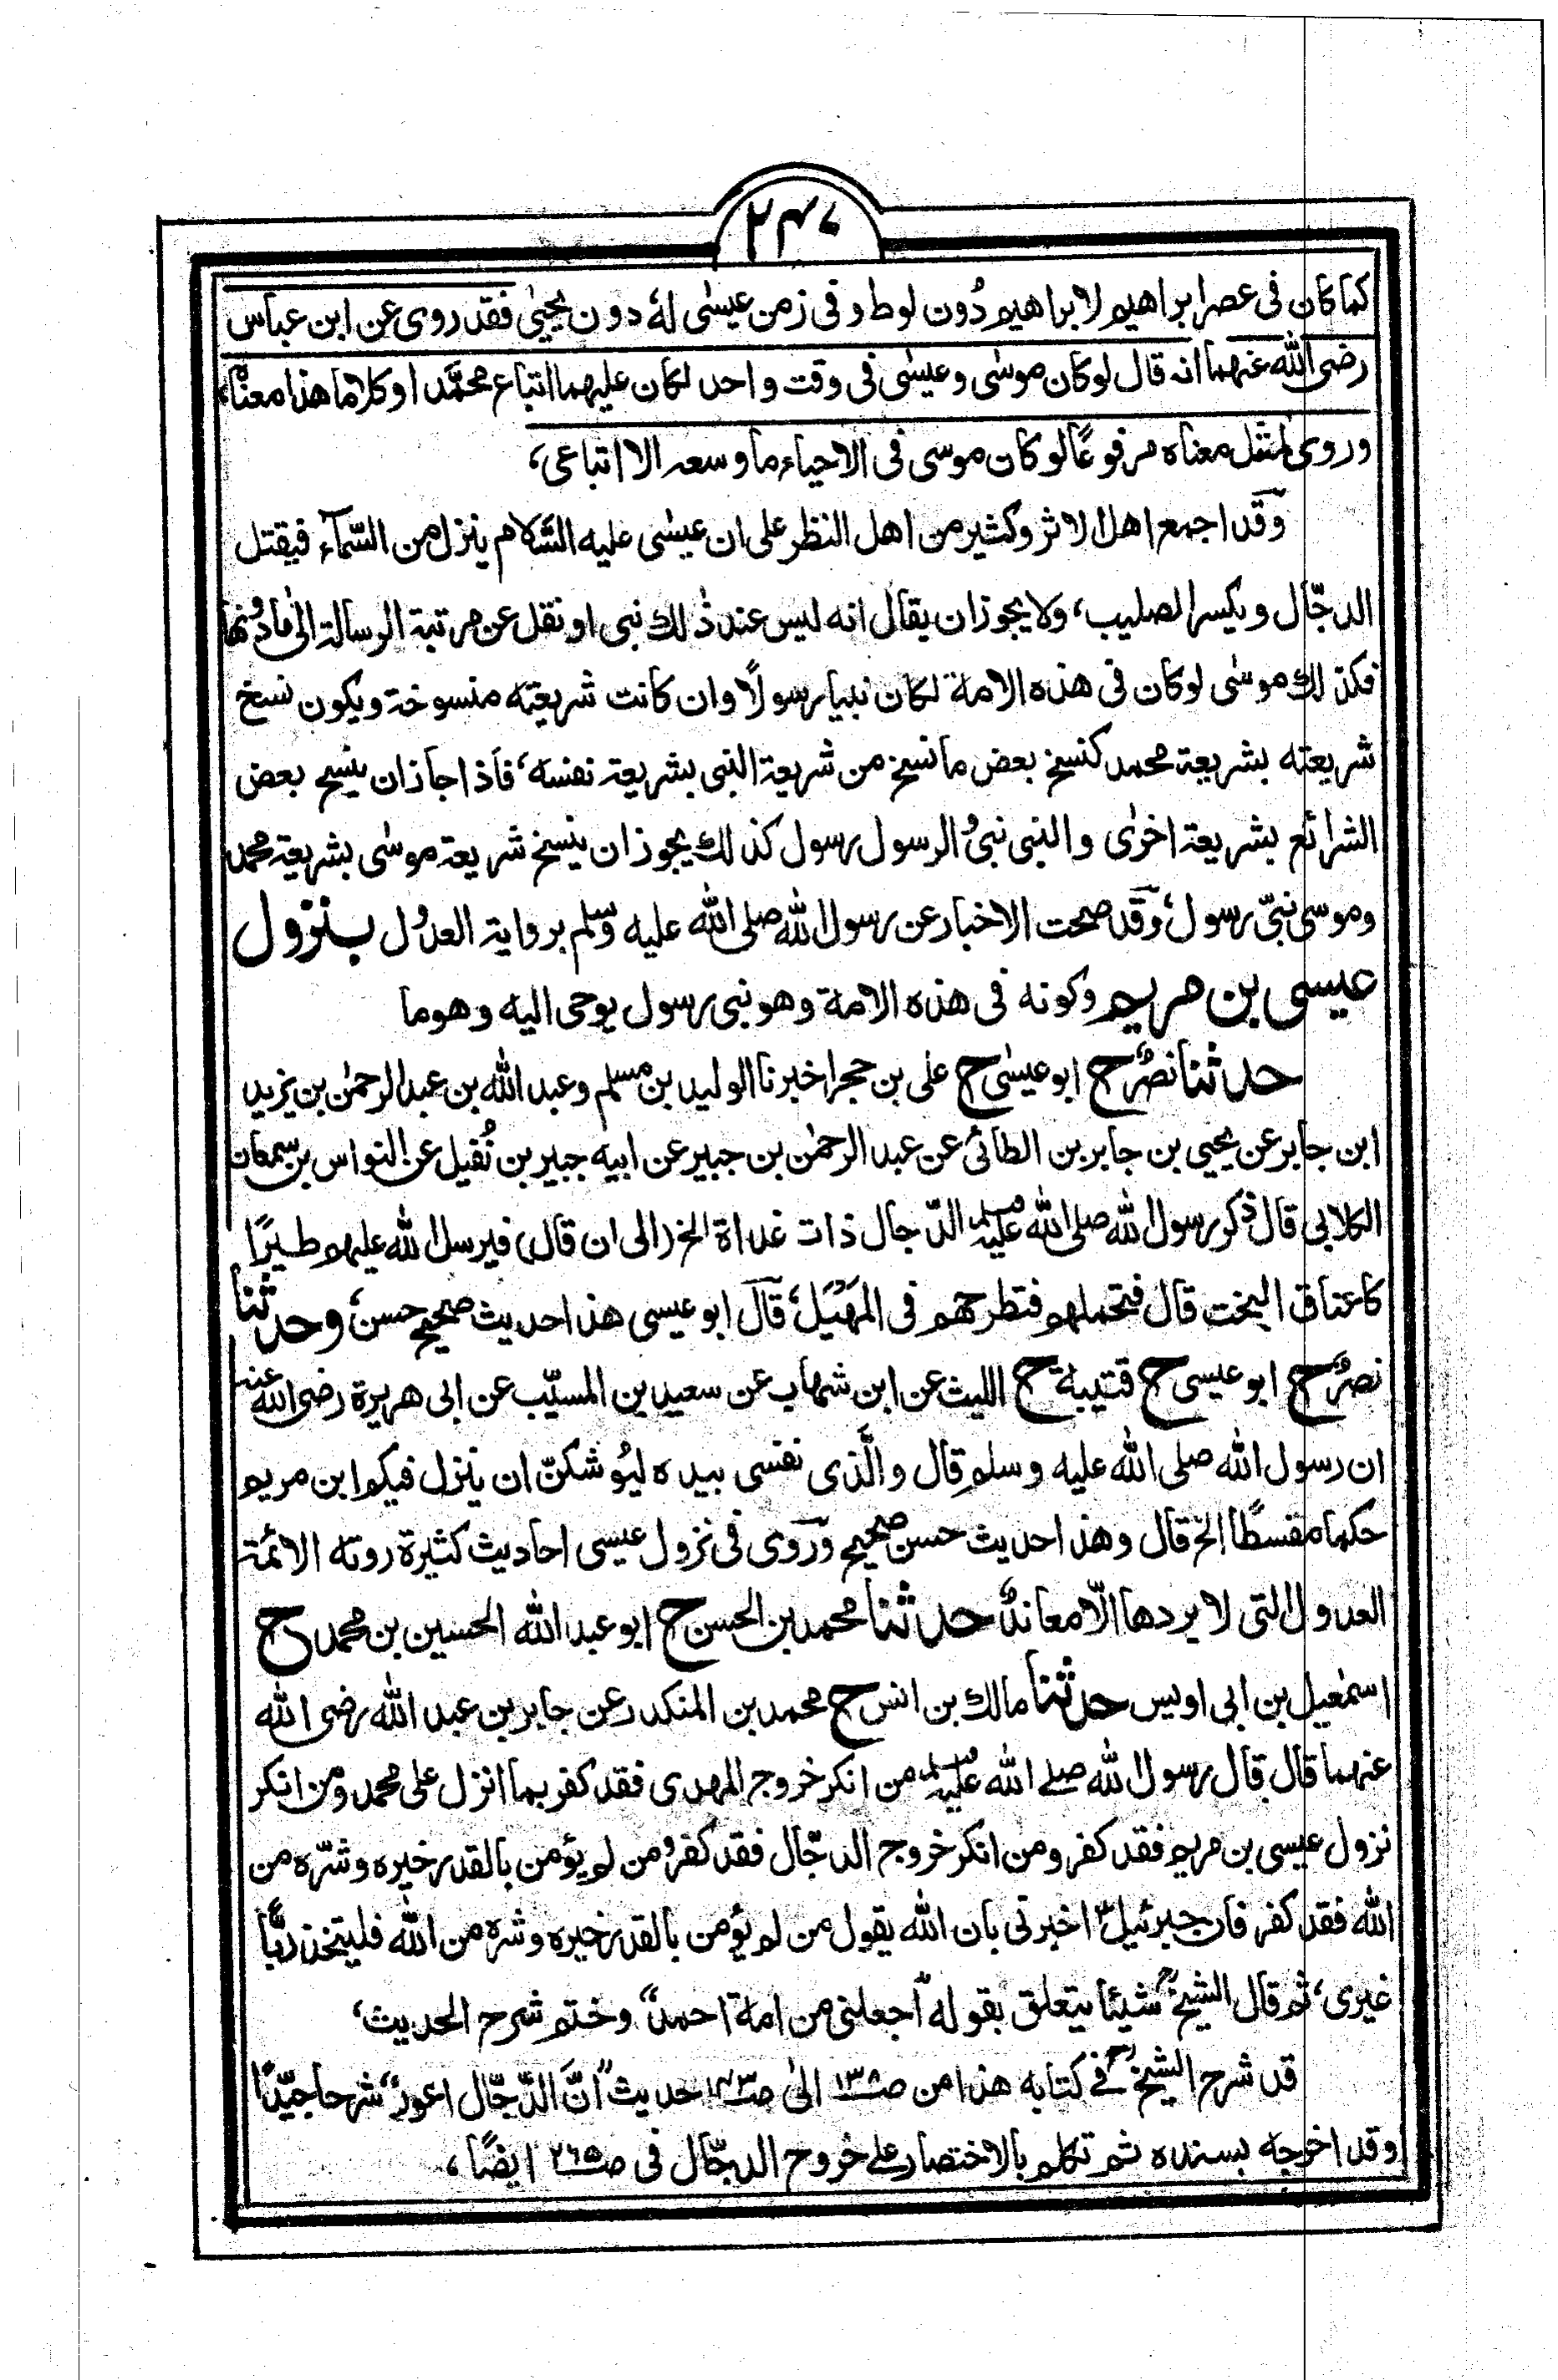 ٢٤٧
كما كان فى عصر ابراهيم لابراهيم دُون لوط وفى زمن عيسٰى لهٗ دون يحيٰى فقد روى عن ابن عباس
رضى الله عنهما انه قال لو كان موسٰى وعيسٰى فى وقت واحد لكان عليهما اتباع محمَّد او كلاما هذا معناه،
وروى لمثل معناه مرفوعًا لو كان موسى فى الاحياء ما وسعه الا اتباعى،
وقد اجمع اهل الاثر وكثير من اهل النظر على ان عيسٰى عليه السَّلام ينزل من السَّمآء فيقتل
الدجّال ويكسر الصليب، ولا يجوز ان يقال انه ليس عند ذٰلك نبى او نقل عن مرتبة الرسالة الىٰ ما دونها
فكذلك موسٰى لو كان فى هذه الامة لكان نبيا رسولًا وان كانت شريعته منسوخة ويكون نسخ
شريعته بشريعة محمد كنسخ بعض ما نسخ من شريعة النبى بشريعة نفسه، فاذا جاز ان ينسخ بعض
الشرائع بشريعة اخرٰى والنبى نبىٌ الرسول رسول كذلك يجوز ان ينسخ شريعة موسٰى بشريعة محمد
وموسى نبىّ رسول، وقد صحت الاخبار عن رسول الله صلى الله عليه وسلم برواية العدُول بنزول
عيسى بن مريم وكونه فى هذه الامة وهو نبى رسول يوحى اليه وهو ما
حدثنا نصرٌ ح ابو عيسٰى ح على بن حجر اخبرنا الوليد بن مسلم وعبد الله بن عبد الرحمٰن بن يزيد
ابن جابر عن يحيى بن جابر بن الطائى عن عبد الرحمٰن بن جبير عن ابيه جبير بن نُفيل عن النواس بن سمعان
الكلابى قال ذكر رسول الله صلى الله عليه وسلم الدّجال ذات غداة الخ (الى ان قال) فيرسل الله عليهم طيرًا
كاعناق البخت قال فتحملهم فتطرحهم فى المَهْبَل، قال ابو عيسى هذا حديث صحيح حسن، وحدثنا
نصرٌ ح ابو عيسى ح قتيبة ح الليث عن ابن شهاب عن سعيد بن المسيّب عن ابى هريرة رضى الله عنه
ان رسول الله صلى الله عليه وسلم قال والَّذى نفسى بيده ليُوشكنّ ان ينزل فيكم ابن مريم
حكما مقسطًا الخ قال وهذا حديث حسن صحيح وروى فى نزول عيسى احاديث كثيرة روته الائمة
العدول التى لا يردها الّا معاندٌ حدثنا محمد بن الحسن ح ابو عبد الله الحسين بن محمد ح
اسمٰعيل بن ابى اويس حدثنا مالك بن انس ح محمد بن المنكدر عن جابر بن عبد الله رضى الله
عنهما قال قال رسول الله صلے الله عليه وسلم من انكر خروج المهدى فقد كفر بما انزل على محمد ومن انكر
نزول عيسى بن مريم فقد كفر ومن انكر خروج الدجّال فقد كفر ومن لم يؤمن بالقدر خيره وشرّه من
الله فقد كفر فان جبرئيلؑ اخبرنى بان الله يقول من لم يؤمن بالقدر خيره وشره من الله فليتخذ ربًّا
غيرى، ثم قال الشيخؒ شيئا يتعلق بقوله "اجعلنى من امة احمد" وختم شرح الحديث،
قد شرح الشيخؒ فے كتابه هذا من ص١٣٨ الىٰ ص١٤٣ حديث "انَّ الدَّجّال اعور" شرحا جيّدًا
وقد اخرجه بسنده ثم تكلم بالاختصار علے خروج الدجّال فى ص٢٦٥ ايضًا،